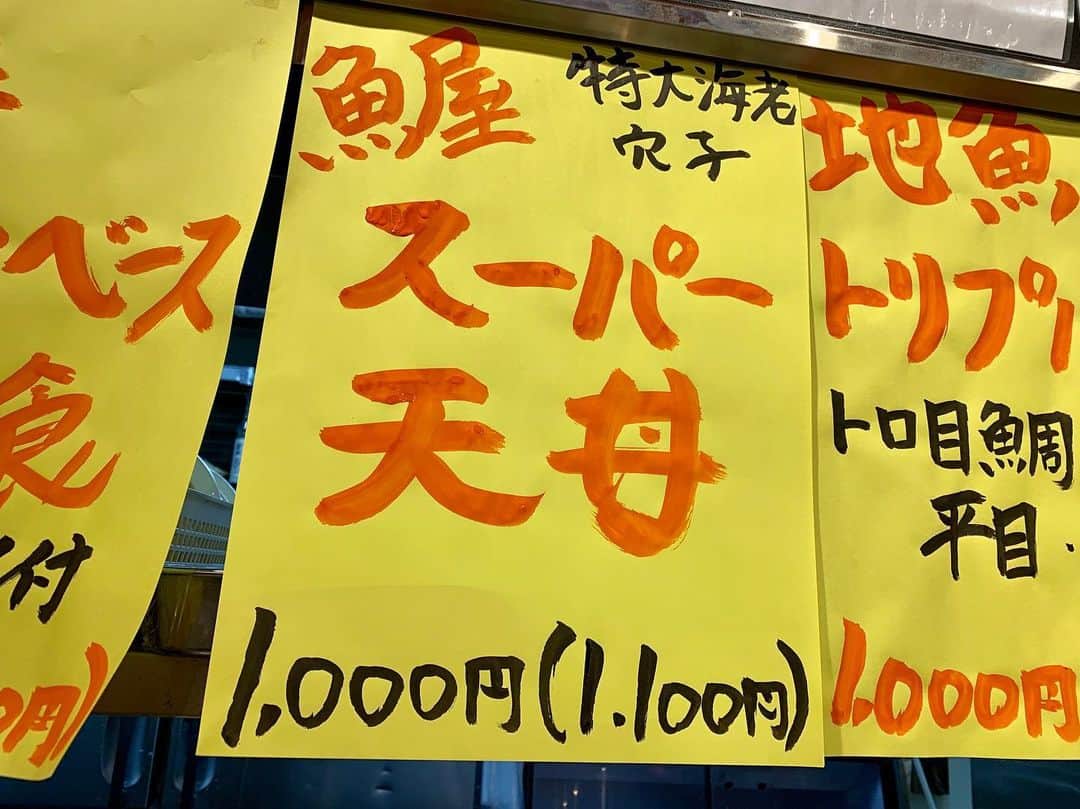 ベース
食
付
円)
魚屋
特大海老
穴子
スーパー
天丼
1,000円(1.100円)
地魚
トリプル
トロ目鯛
平目・
1,000円